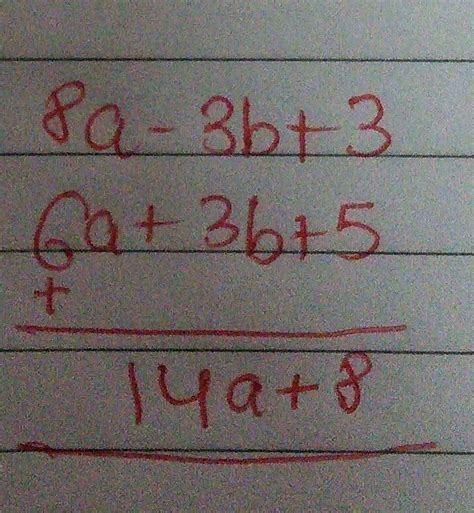 8a - 3b + 3
6a + 3b + 5
+
14a + 8